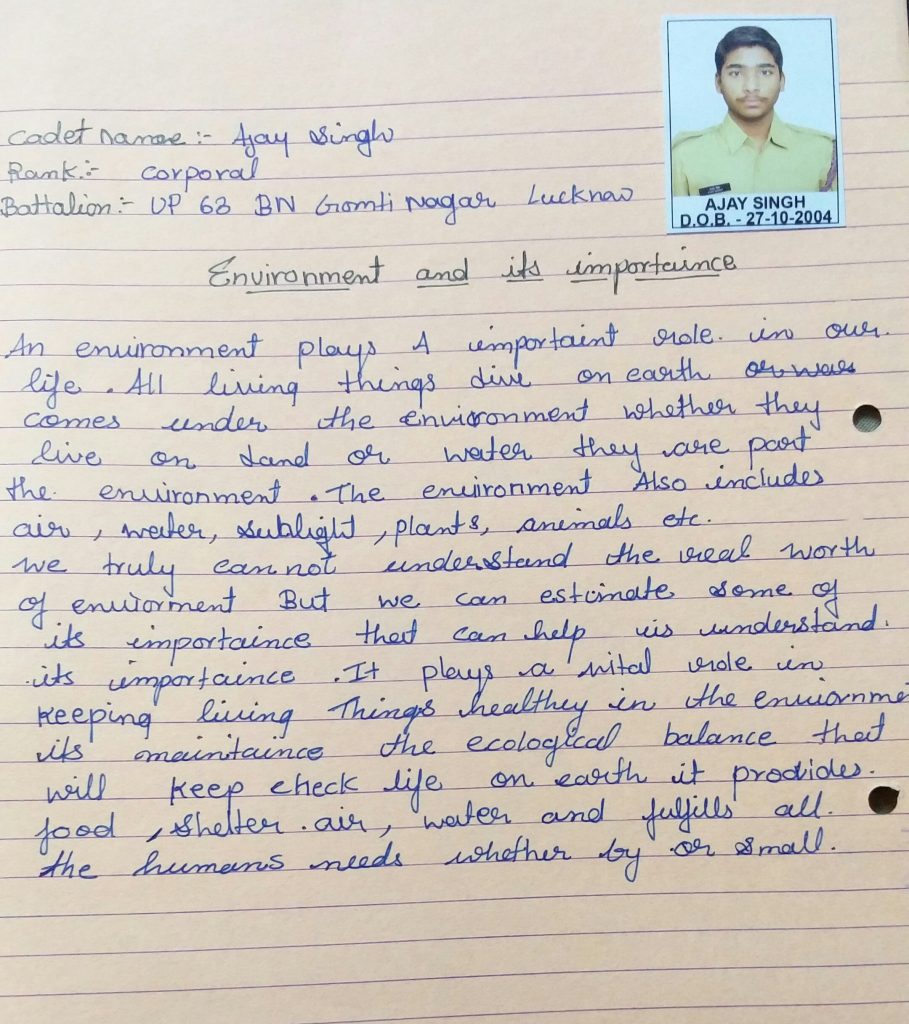 Cadet name :- Ajay Singh
Rank :- corporal
Battalion :- UP 63 BN Gomti Nagar Lucknow
AJAY SINGH
D.O.B. - 27-10-2004
Environment and its importaince
An environment plays A importaint role. in our.
life. All living things live on earth or was
comes under the environment whether they
live on land or water they are part
the environment. The environment Also includes
air, water, sublight, plants, animals etc.
we truly cannot understand the real worth
of enviorment But we can estimate some of
its importaince that can help us understand.
its importaince. It plays a vital role in
keeping living Things healthey in the envionme
its maintaince the ecological balance that
will keep check life on earth it prodides.
food, shelter. air, water and fulfills all.
the humans needs whether by or small.